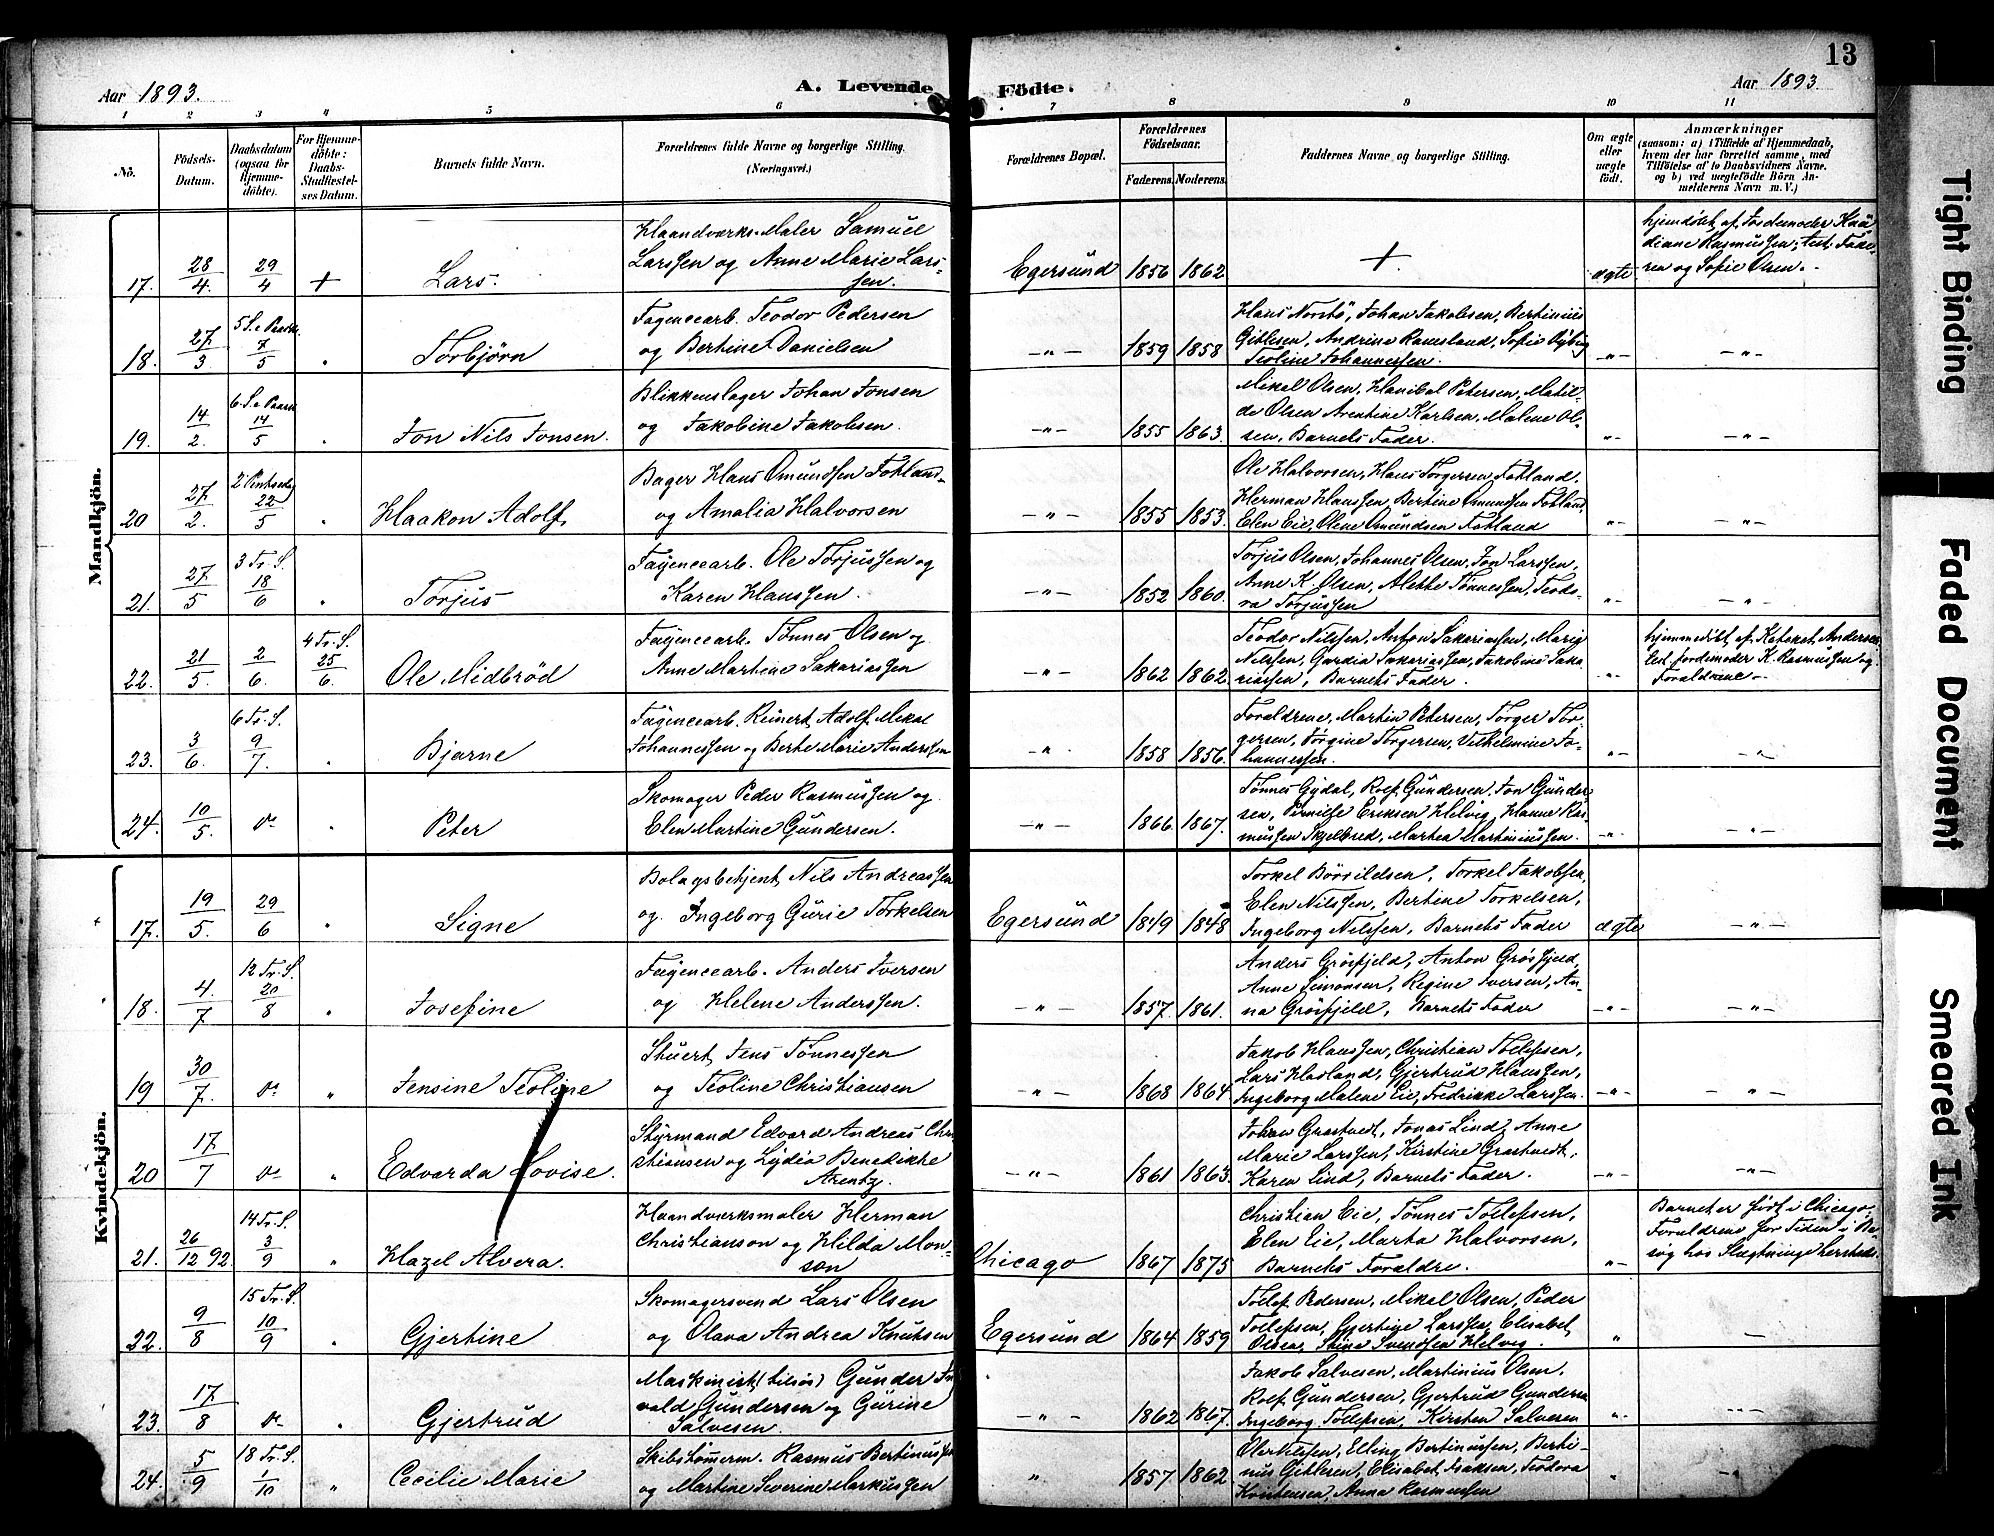 13
Aar 1893.
A. Levende Födte.
Aar 1893.
1 2 3 4 5 6 7 8 9 10 11
No.
Födsels-Datum.
Daabsdatum (ogsaa for Hjemme-döbte).
For Hjemme-döbte: Daabs-Stadfæstel-ses Datum.
Barnets fulde Navn.
Forældrenes fulde Navne og borgerlige Stilling. (Næringsvei.)
Forældrenes Bopæl.
Forældrenes Födselsaar.
Faderens. Moderens.
Faddernes Navne og borgerlige Stilling.
Om ægte eller uægte födt.
Anmærkninger
(saasom: a) i Tilfælde af Hjemmedaab,
hvem der har forrettet samme, med
Tilföielse af to Daabsvidners Navne,
og b) ved uægtefödte Börn An-
melderens Navn m. V.)
Mandkjön.
17. 28/4. 29/4 + Lars.
Haandværks-Maler Samuel
Larssen og Anne Marie Lars-
sen.
Egersund 1856 1862 + ægte
hjemdöbt af Jordemoder Kaa
diane Rasmussen; test. Fade-
ren og Sofie Olsen.
18. 27/3 5 S. e Paaske 7/5 " Torbjørn
Fayencearb. Teodor Pedersen
og Bertine Danielsen
-"- 1859 1858
Hans Norstö, Johan Jakobsen, Bertinius
Gitlesen, Andrine Ramsland, Sofie Nyborg
Teoline Johannessen.
-"- -"-
19. 14/2. 6 S. e Paaske 14/5 " Jon Nils Jonsen.
Blikkenslager Johan Jonsen
og Jakobine Jakobsen.
-"- 1855 1863.
Mikal Olsen, Hanibal Petersen, Matil-
de Olsen Arentine Karlsen, Malene Ol-
sen, Barnets Fader.
-"- -"-
20 27/2. 2 Pintsedag 22/5 " Haakon Adolf,
Bager Hans Omundsen Fotland-
og Amalia Halvorsen
-"- 1855 1853.
Ole Halvorsen, Hans Torgersen Fotland.
Herman Hanssen, Bertine Omundsen Fotland
Elen Eie, Olene Omundsen Fotland
-"- -"-
21. 27/5 3 Tr. S. 18/6 " Torjus
Fayencearb. Ole Torjussen og
Karen Hanssen.
-"- 1852 1860.
Torjus Olsen, Johannes Olsen, Jon Larssen,
Anne K. Olsen, Alette Tønnessen, Teodo-
ra Torjussen
-"- -"-
22. 21/5. 2/6. 4 Tr. S. 25/6. Ole Midbrød
Fayencearb. Tönnes Olsen og
Anne Martine Sakariassen
-"- 1862 1862.
Teodor Nilssen, Anton Sakariassen, Marie
Nilssen, Gurdia Sakariassen, Jakobine Saka-
riassen, Barnets Fader.
-"-
hjemmedöbt af Kateket Andersen
test. jordemoder K. Rasmussen og
Forældrene.
23. 3/6. 6 Tr. S. 9/7. " Bjarne
Fayencearb. Reinert Adolf Mikal
Johannessen og Berte Marie Anderssen
-"- 1858 1856.
Forældrene, Martin Petersen, Torger Tor-
gersen, Jørgine Torgersen, Vilhelmine Jo-
hannessen.
-"- -"-
24. 10/5. do " Peter
Skomager Peder Rasmussen og
Elen Martine Gundersen.
-"- 1866. 1867.
Tönnes Gydal, Rolf Gundersen, Jon Gunder-
sen, Pernille Eriksen Helvig, Hanne Ras-
mussen Skjelbred, Martea Martiniussen.
-"- -"-
Kvindekjön.
17. 19/5. 29/6 " Signe
Bolagsbetjent, Nils Andreassen
og Ingeborg Gurie Torkelsen
Egersund 1849 1848
Torkel Börrildsen, Torkel Jakobsen,
Elen Nilssen, Bertine Torkelsen,
Ingeborg Nilssen, Barnets Fader
ægte -"-
18. 4/7 12 Tr. S. 20/8 " Josefine
Fayencearb. Anders Iversen
og Helene Anderssen.
-"- 1857. 1861.
Anders Grösfjeld, Anton Grösfjeld,
Anne Simonsen, Regine Iversen, An-
na Grösfjeld, Barnets Fader
-"- -"-
19 30/7. do " Jensine Teoline
Stuert, Jens Tönnessen
og Teoline Christiansen
-"- 1868 1864
Jakob Hanssen, Christian Tollefsen,
Lars Hadland, Gjertrud Hanssen,
Ingeborg Malene Eie, Fredrikke Larssen.
-"- -"-
20 17/7 do " Edvarda Lovise.
Styrmand Edvard Andreas Chri
stiansen og Lydia Benedikte
Arentz.
-"- 1861 1863.
Johan Grastvedt, Jonas Lind, Anne
Marie Larssen, Kirstine Grastvedt,
Karen Lind, Barnets Fader.
-"- -"-
21. 26/12 92 14 Tr. S. 3/9 " Hazel Alvera.
Haandværksmaler Herman
Christianson og Hilda Mon-
son
Chicago 1867 1875
Christian Eie, Tönnes Tollefsen,
Elen Eie, Marta Halvorsen,
Barnets Forældre.
-"-
Barnet er født i Chicago;
Forældrene for Tiden i Be-
søg hos Slægtninge hersteds.
22. 9/8 15 Tr. S. 10/9 " Gjertine
Skomagersvend Lars Olsen
og Olava Andrea Knutsen
Egersund 1864 1859
Tollef Pedersen, Mikal Olsen, Peder
Tollefsen, Gjertine Larssen, Elisabet
Olsen, Stine Svendsen Helvig.
" -
23. 17/8 do " Gjertrud
Maskinist (tilsös) Gunder In
vald Gundersen og Gurine
Salvesen.
-"- 1862 1867.
Jakob Salvesen, Martinius Olsen,
Rolf Gundersen, Gjertrud Gundersen
Ingeborg Tollefsen, Kirsten Salvesen
-"- -"-
24. 5/9 18 Tr. S. 1/10 " Cecilie Marie
Skibstömerm. Rasmus Bertinussen
og Martine Severine Markussen
" 1857 1862.
Elling Bertinussen, Berti-
nus Gitlesen, Elisabet Isaksen, Teodora
Kristensen, Anna Rasmussen
" -"-
Tight Binding
Faded Document
Smeared Ink